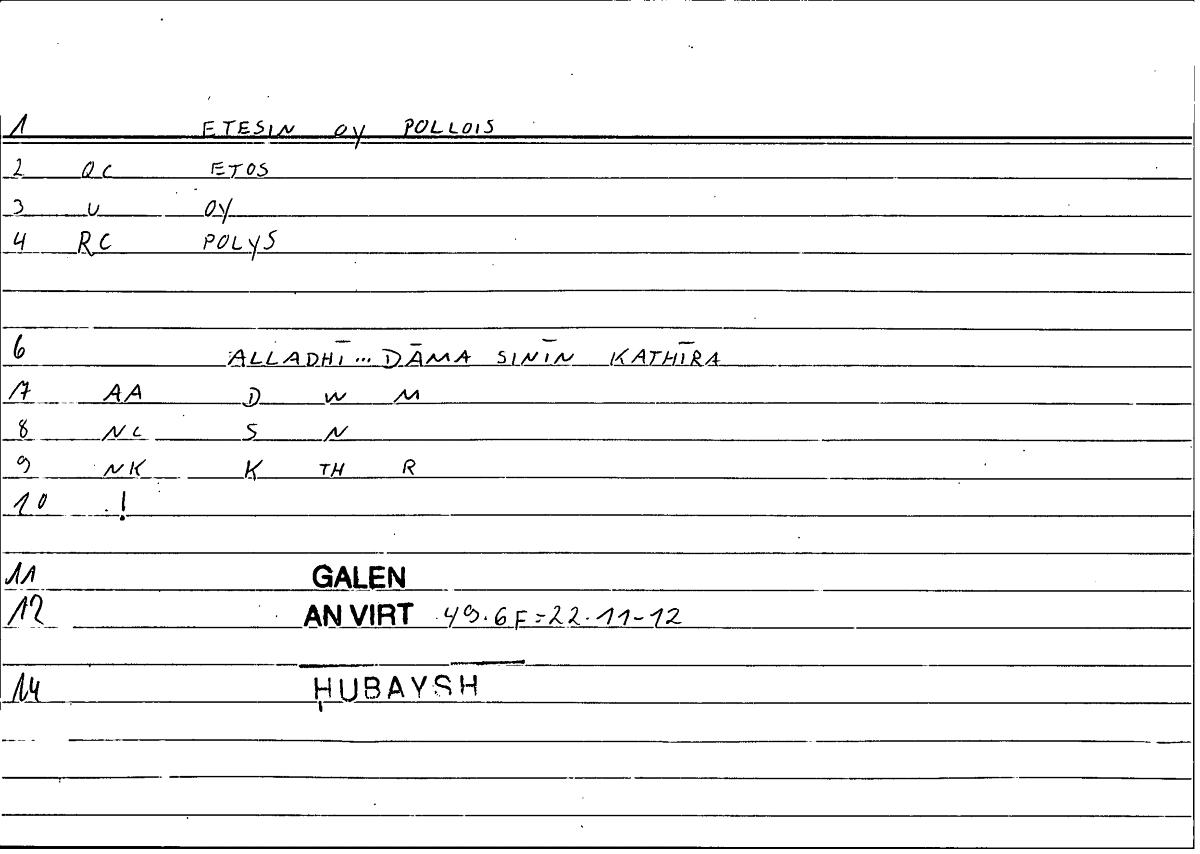 1 ETESIN OY POLLOIS
2 QC ETOS
3 U OY
4 RC POLYS
6 ALLADHĪ... DĀMA SINĪN KATHĪRA
7 AA D W M
8 NL S N
9 NK K TH R
10 !
11 GALEN
12 AN VIRT 49.6F=22.11-12
14 ḤUBAYSH